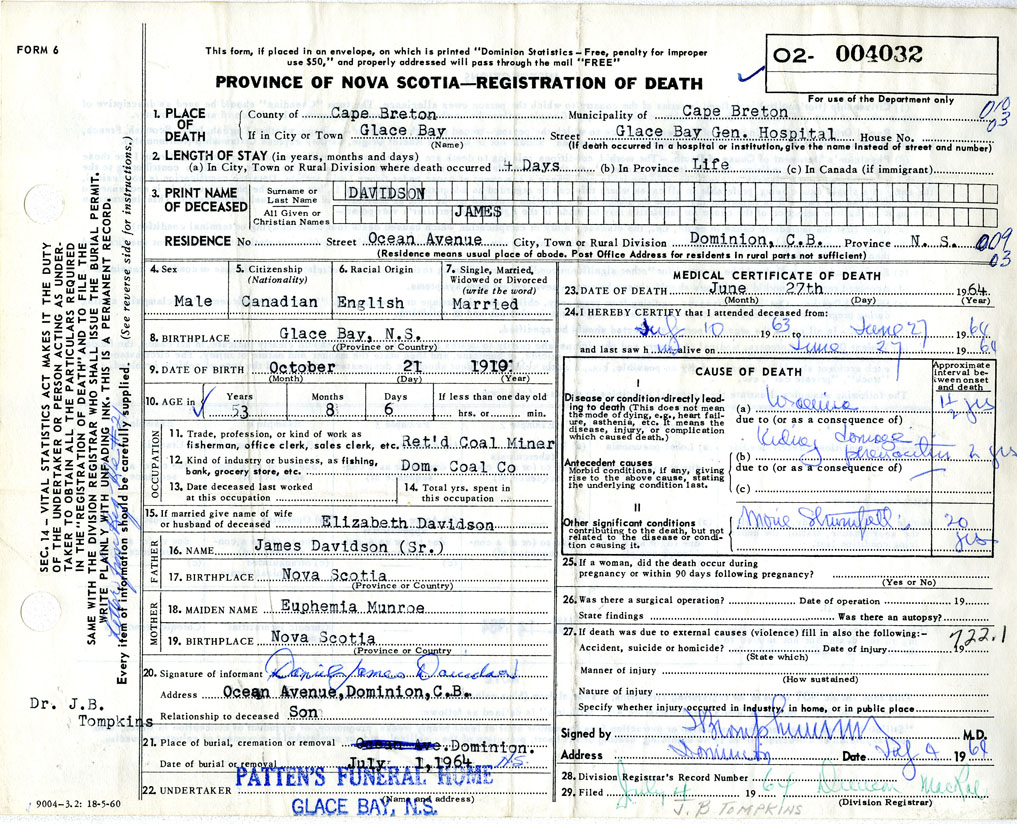 FORM 6
This form, if placed in an envelope, on which is printed "Dominion Statistics – Free, penalty for improper
use $50," and properly addressed will pass through the mail "FREE"
PROVINCE OF NOVA SCOTIA—REGISTRATION OF DEATH
O2- 004032
For use of the Department only
SEC. 14 – VITAL STATISTICS ACT MAKES IT THE DUTY
OF THE UNDERTAKER OR PERSON ACTING AS UNDER-
TAKER TO OBTAIN ALL THE PARTICULARS REQUIRED
IN THE "REGISTRATION OF DEATH" AND TO FILE THE
SAME WITH THE DIVISION REGISTRAR WHO SHALL ISSUE THE BURIAL PERMIT.
WRITE PLAINLY WITH UNFADING INK. THIS IS A PERMANENT RECORD.
Every item of information should be carefully supplied. (See reverse side for instructions.)
1. PLACE OF DEATH
County of Cape Breton Municipality of Cape Breton 010
03
If in City or Town Glace Bay Street Glace Bay Gen. Hospital House No.
(Name) (If death occurred in a hospital or institution, give the name instead of street and number)
2. LENGTH OF STAY (in years, months and days)
(a) In City, Town or Rural Division where death occurred 4 Days (b) In Province Life (c) In Canada (if immigrant)
3. PRINT NAME OF DECEASED
Surname or Last Name DAVIDSON
All Given or Christian Names JAMES
RESIDENCE No Street Ocean Avenue City, Town or Rural Division Dominion, C.B. Province N. S. 009
03
(Residence means usual place of abode. Post Office Address for residents in rural parts not sufficient)
4. Sex
Male
5. Citizenship
(Nationality)
Canadian
6. Racial Origin
English
7. Single, Married,
Widowed or Divorced
(write the word)
Married
8. BIRTHPLACE Glace Bay, N.S.
((Province or Country)
9. DATE OF BIRTH October 21 1910
(Month) (Day) (Year)
10. AGE in
Years Months Days If less than one day old
53 8 6 hrs. or min.
OCCUPATION
11. Trade, profession, or kind of work as
fisherman, office clerk, sales clerk, etc. Ret'd Coal Miner
12. Kind of industry or business, as fishing,
bank, grocery store, etc. Dom. Coal Co
13. Date deceased last worked
at this occupation
14. Total yrs. spent in
this occupation
15. If married give name of wife
or husband of deceased Elizabeth Davidson
FATHER
16. NAME James Davidson (Sr.)
17. BIRTHPLACE Nova Scotia
(Province or Country)
MOTHER
18. MAIDEN NAME Euphemia Munroe
19. BIRTHPLACE Nova Scotia
(Province or Country
20. Signature of informant Daniel James Davidson
Address Ocean Avenue, Dominion, C.B.
Relationship to deceased Son
Dr. J.B.
Tompkins
21. Place of burial, cremation or removal Ocean Ave. Dominion.
Date of burial or removal July 1, 1964 NS
22. UNDERTAKER PATTEN'S FUNERAL HOME
(Name and address)
GLACE BAY, N.S.
9004-3.2: 18-5-60
MEDICAL CERTIFICATE OF DEATH
23. DATE OF DEATH June 27th 1964
(Month) (Day) (Year)
24. I HEREBY CERTIFY that I attended deceased from:
July 10 1963 to June 27 1964
and last saw him alive on June 27 1964
CAUSE OF DEATH
Approximate
interval be-
tween onset
and death
I
Disease or condition directly lead-
ing to death (This does not mean
the mode of dying, e.g., heart fail-
ure, asthenia, etc. It means the
disease, injury, or complication
which caused death.)
(a) Uraemia
due to (or as a consequence of)
Kidney damage
(b) 2 yrs
due to (or as a consequence of)
(c)
Antecedent causes
Morbid conditions, if any, giving
rise to the above cause, stating
the underlying condition last.
II
Other significant conditions
contributing to the death, but not
related to the disease or condi-
tion causing it.
Marie Strumpell 20
yrs
25. If a woman, did the death occur during
pregnancy or within 90 days following pregnancy?
(Yes or No)
26. Was there a surgical operation? Date of operation 19
State findings Was there an autopsy?
27. If death was due to external causes (violence) fill in also the following:– 722.1
Accident, suicide or homicide? Date of injury 19
(State which)
Manner of injury
(How sustained)
Nature of injury
Specify whether injury occurred in industry, in home, or in public place
Signed by M.D.
Address Dominion Date July 4 1964
28. Division Registrar's Record Number 64
29. Filed July 4 1964
(Division Registrar)
J. B TOMPKINS